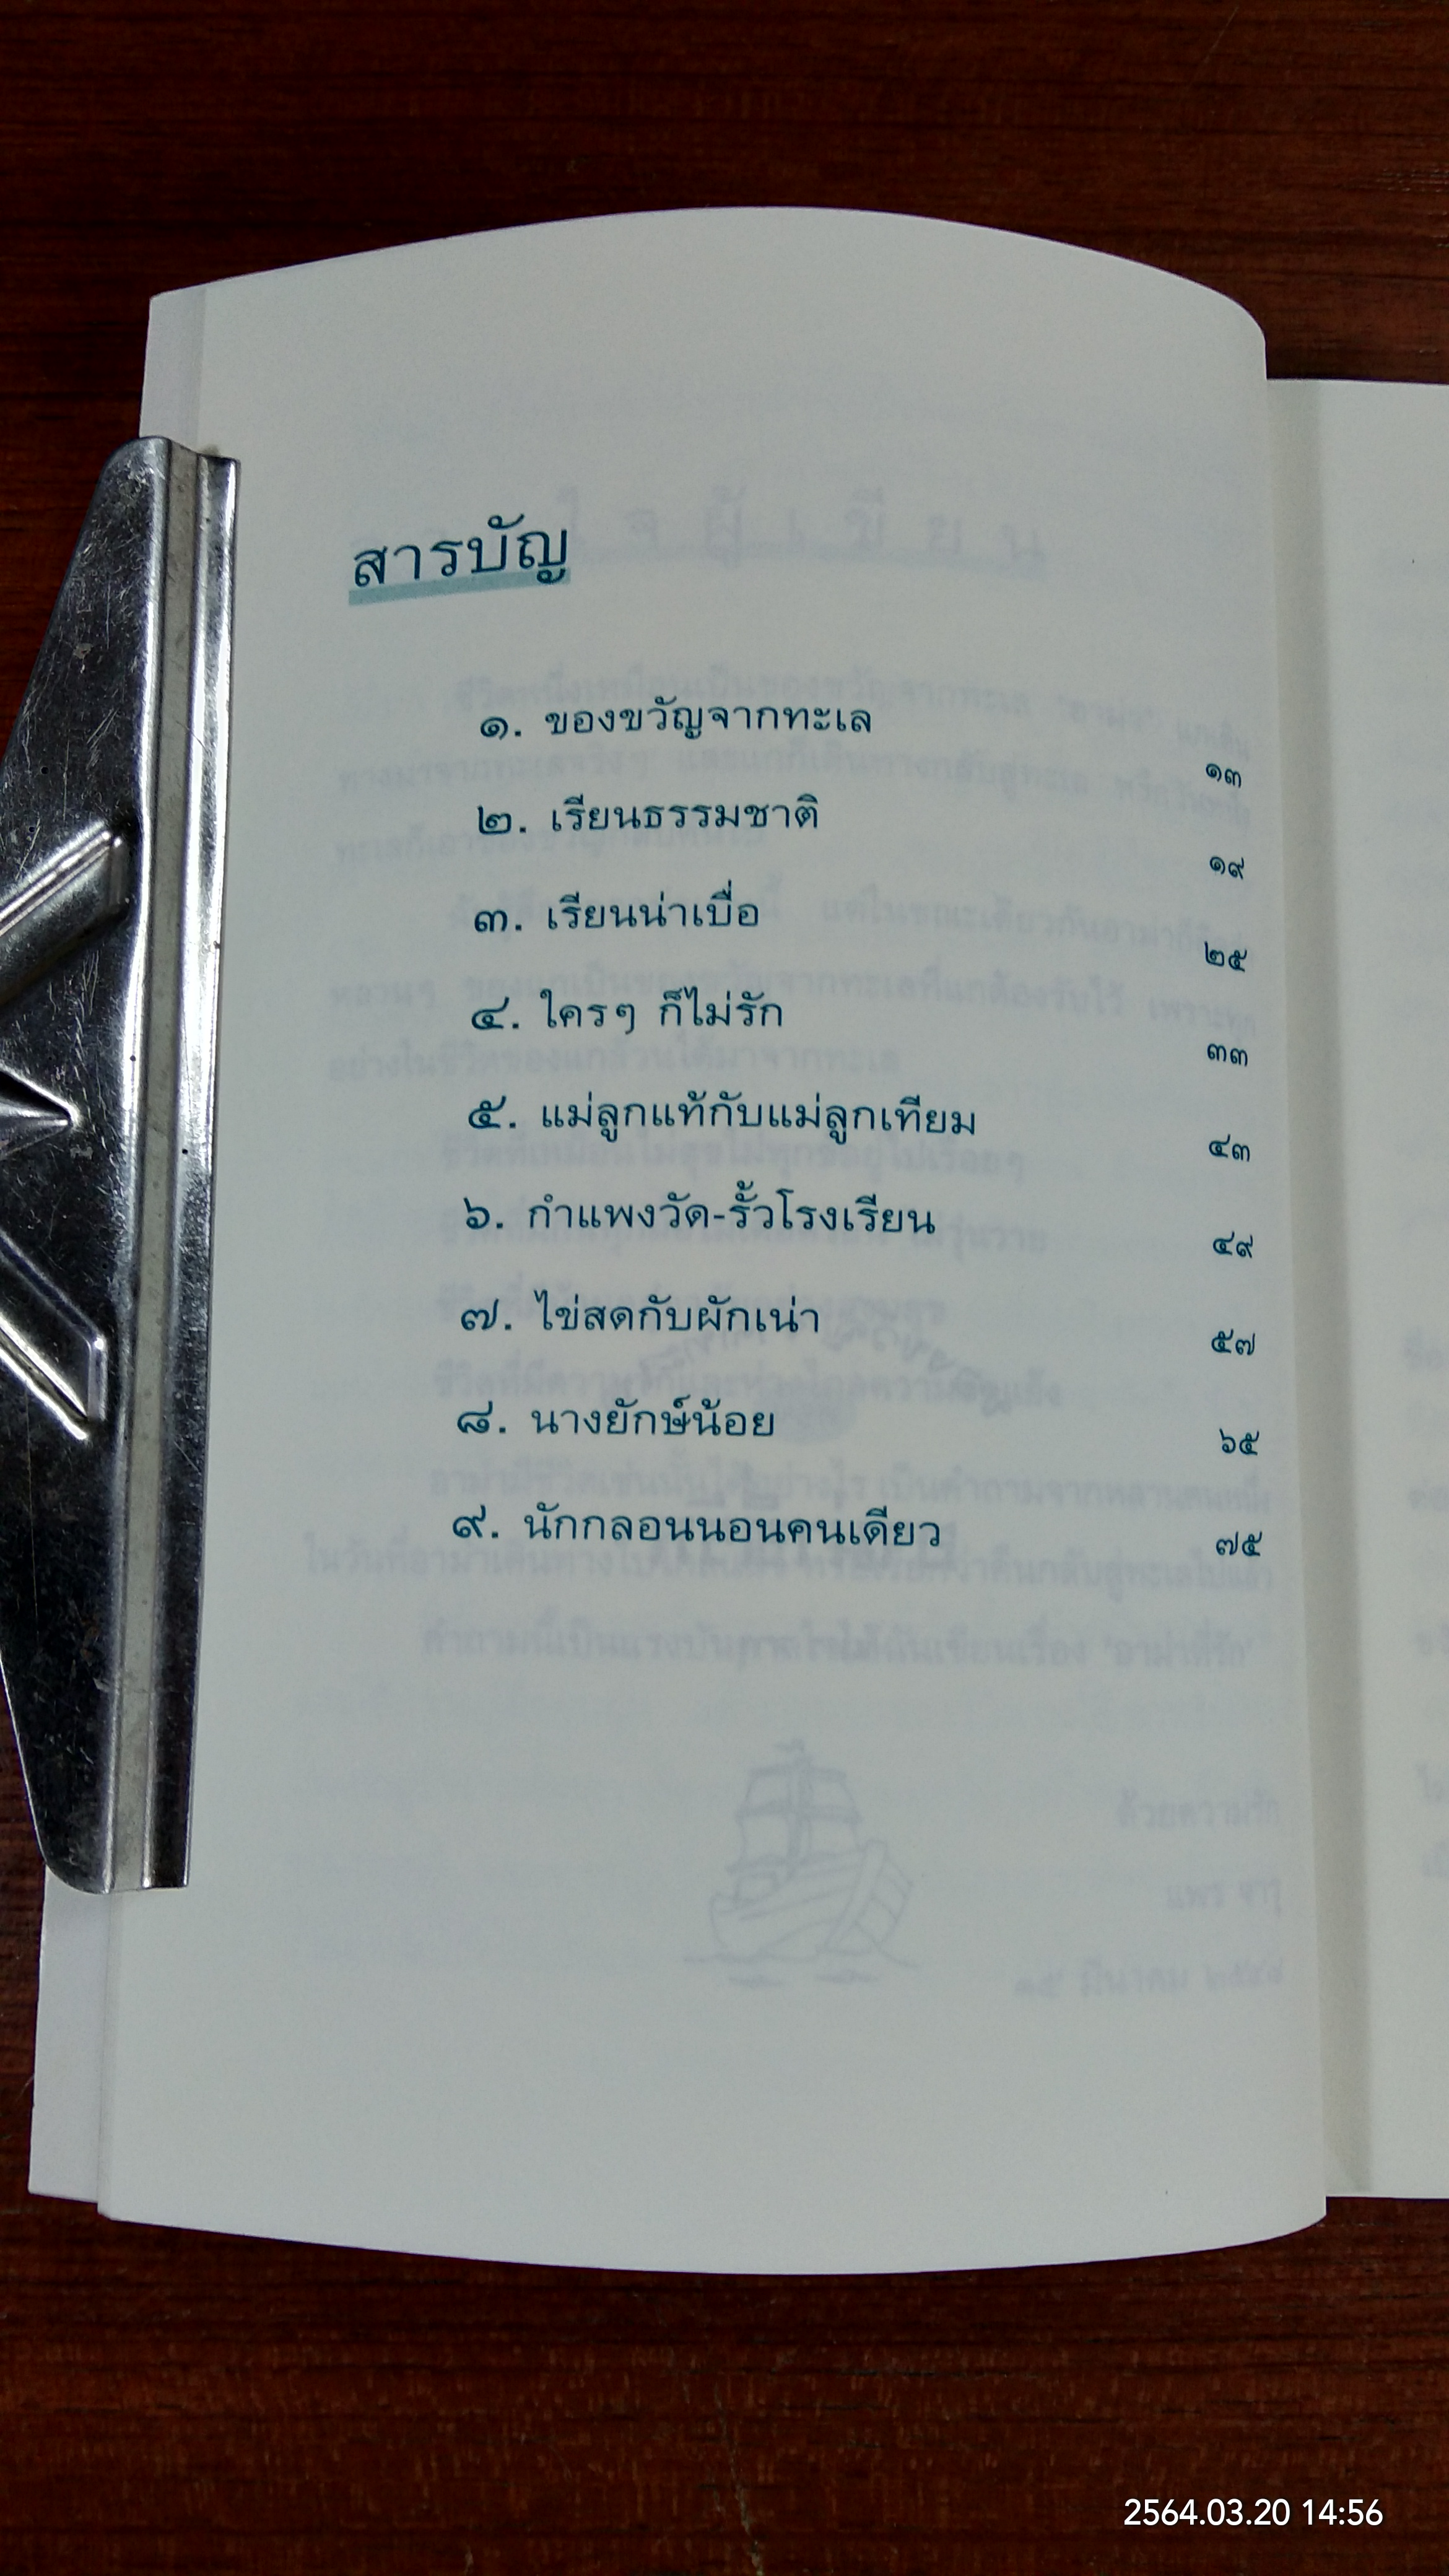 สารบัญ
๑. ของขวัญจากทะเล ๑๓
๒. เรียนธรรมชาติ ๑๙
๓. เรียนน่าเบื่อ ๒๕
๔. ใครๆ ก็ไม่รัก ๓๓
๕. แม่ลูกแท้กับแม่ลูกเทียม ๔๓
๖. กำแพงวัด-รั้วโรงเรียน ๔๙
๗. ไข่สดกับผักเน่า ๕๗
๘. นางยักษ์น้อย ๖๕
๙. นักกลอนนอนคนเดียว ๗๕
2564.03.20 14:56